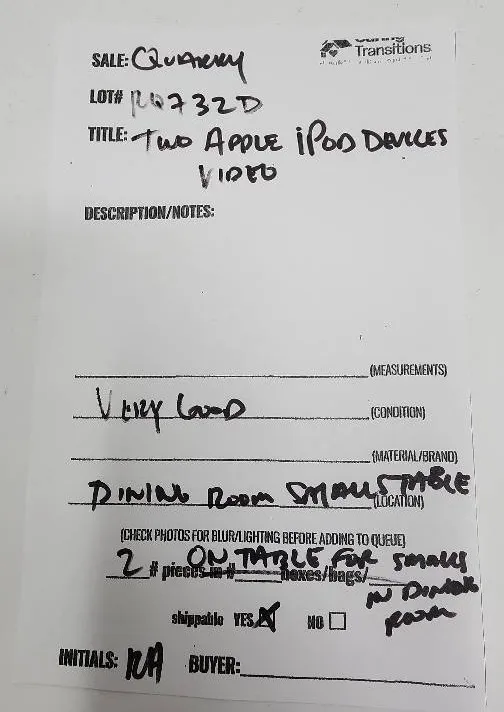 Caring
Transitions
SALE: QUARRY
LOT# RQ732D
TITLE: TWO APPLE iPOD DEVICES
VIDEO
DESCRIPTION/NOTES:
(MEASUREMENTS)
VERY GOOD (CONDITION)
(MATERIAL/BRAND)
DINING ROOM SMALLS TABLE (LOCATION)
(CHECK PHOTOS FOR BLUR/LIGHTING BEFORE ADDING TO QUEUE)
ON TABLE FOR SMALLS
2 # pieces in # boxes/bags/
IN DINING
ROOM
shippable YES NO
INITIALS: RA BUYER: